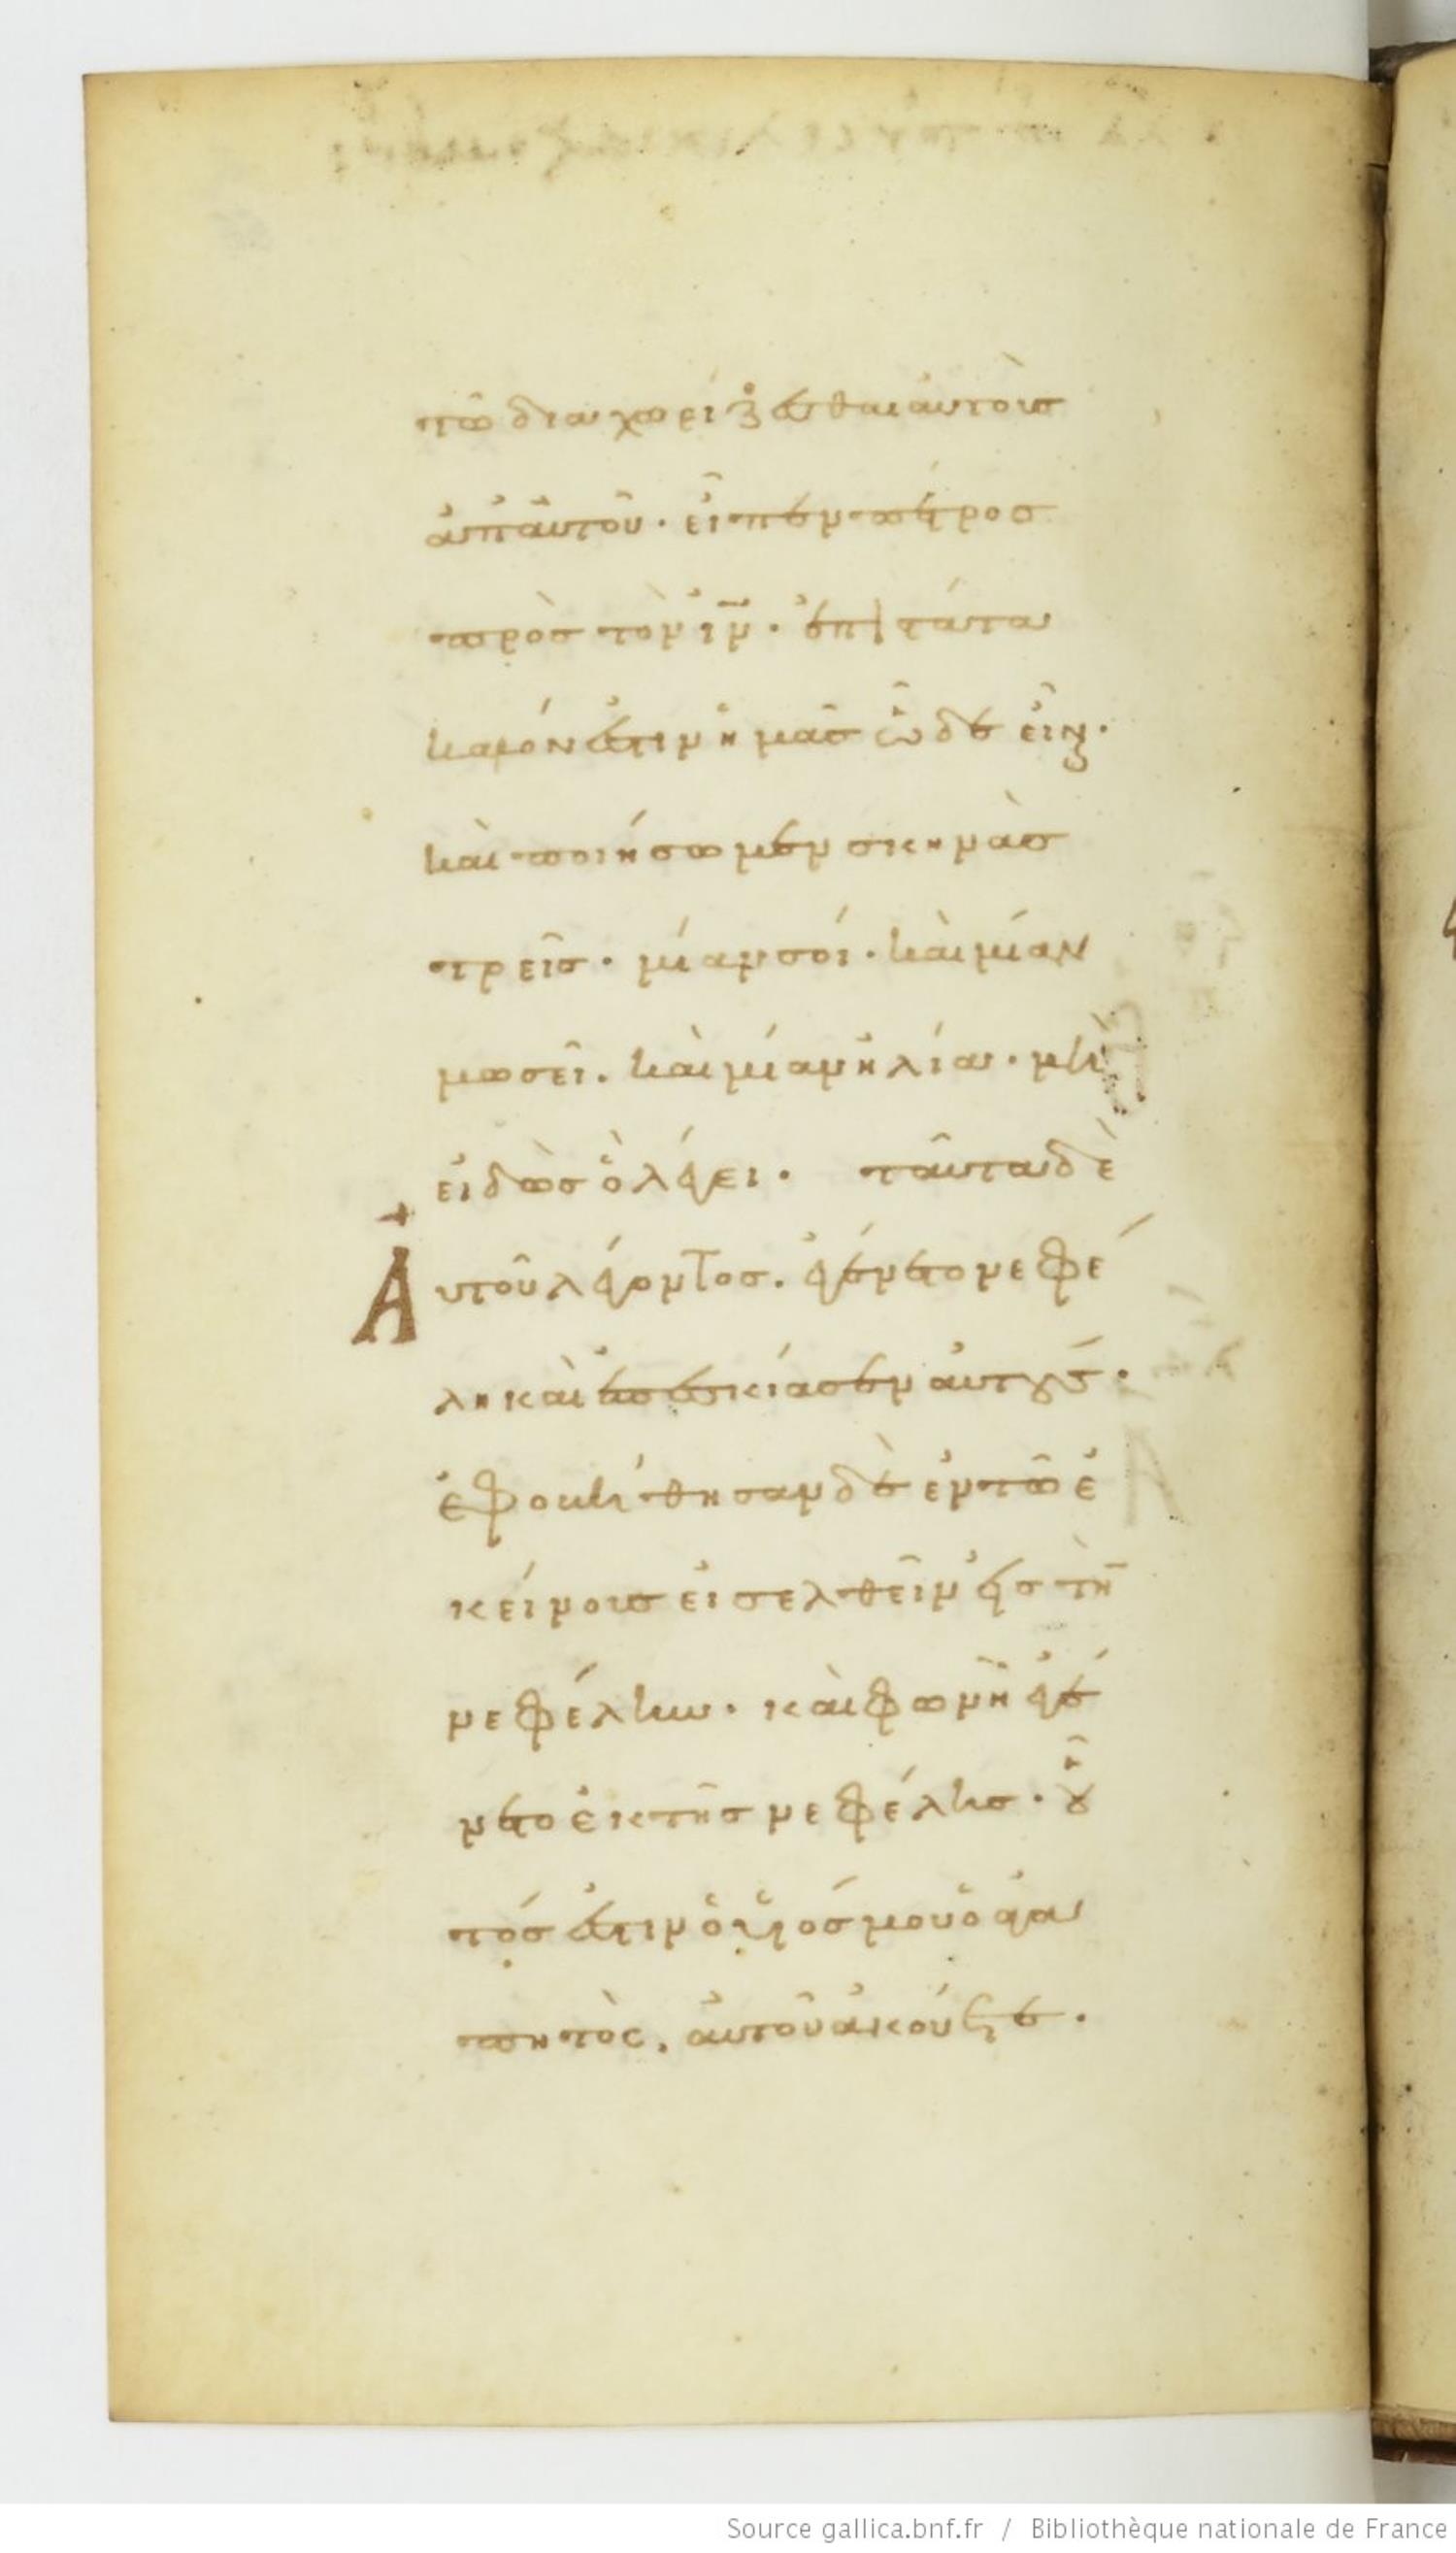 τῶ διαχωρίζεσθαι αὐτοὺσ
ἀπ' ἀυτοῦ· εἶπεν πέτροσ
πρὸσ τὸν ἰν̅· ἐπιστάτα
καλόν ἐστιν ἡμᾶσ ὧδε εἶναι·
καὶ ποιήσωμεν σκηνὰσ
τρεῖσ· μίαν σοί· καὶ μίαν
μωσεῖ. καὶ μίαν ἡλία· μὴ
εἰδὼσ ὃ λέγει· ταῦτα δὲ
Αὐτοῦ λέγοντοσ. ἐγένετο νεφέ
λη καὶ ἐπεσκίασεν αὐτούσ·
ἐφοβήθησαν δὲ ἐν τῶ ἐ
κείνουσ εἰσελθεῖν εἰσ τὴν
νεφέλην· καὶ φωνὴ ἐγέ
νετο ἐκ τῆσ νεφέλησ· οὗ
τόσ ἐστιν ὁ υἱόσ μου ὁ ἀγα
πητὸς. ἀυτοῦ ἀκούετε·
Source gallica.bnf.fr / Bibliothèque nationale de France